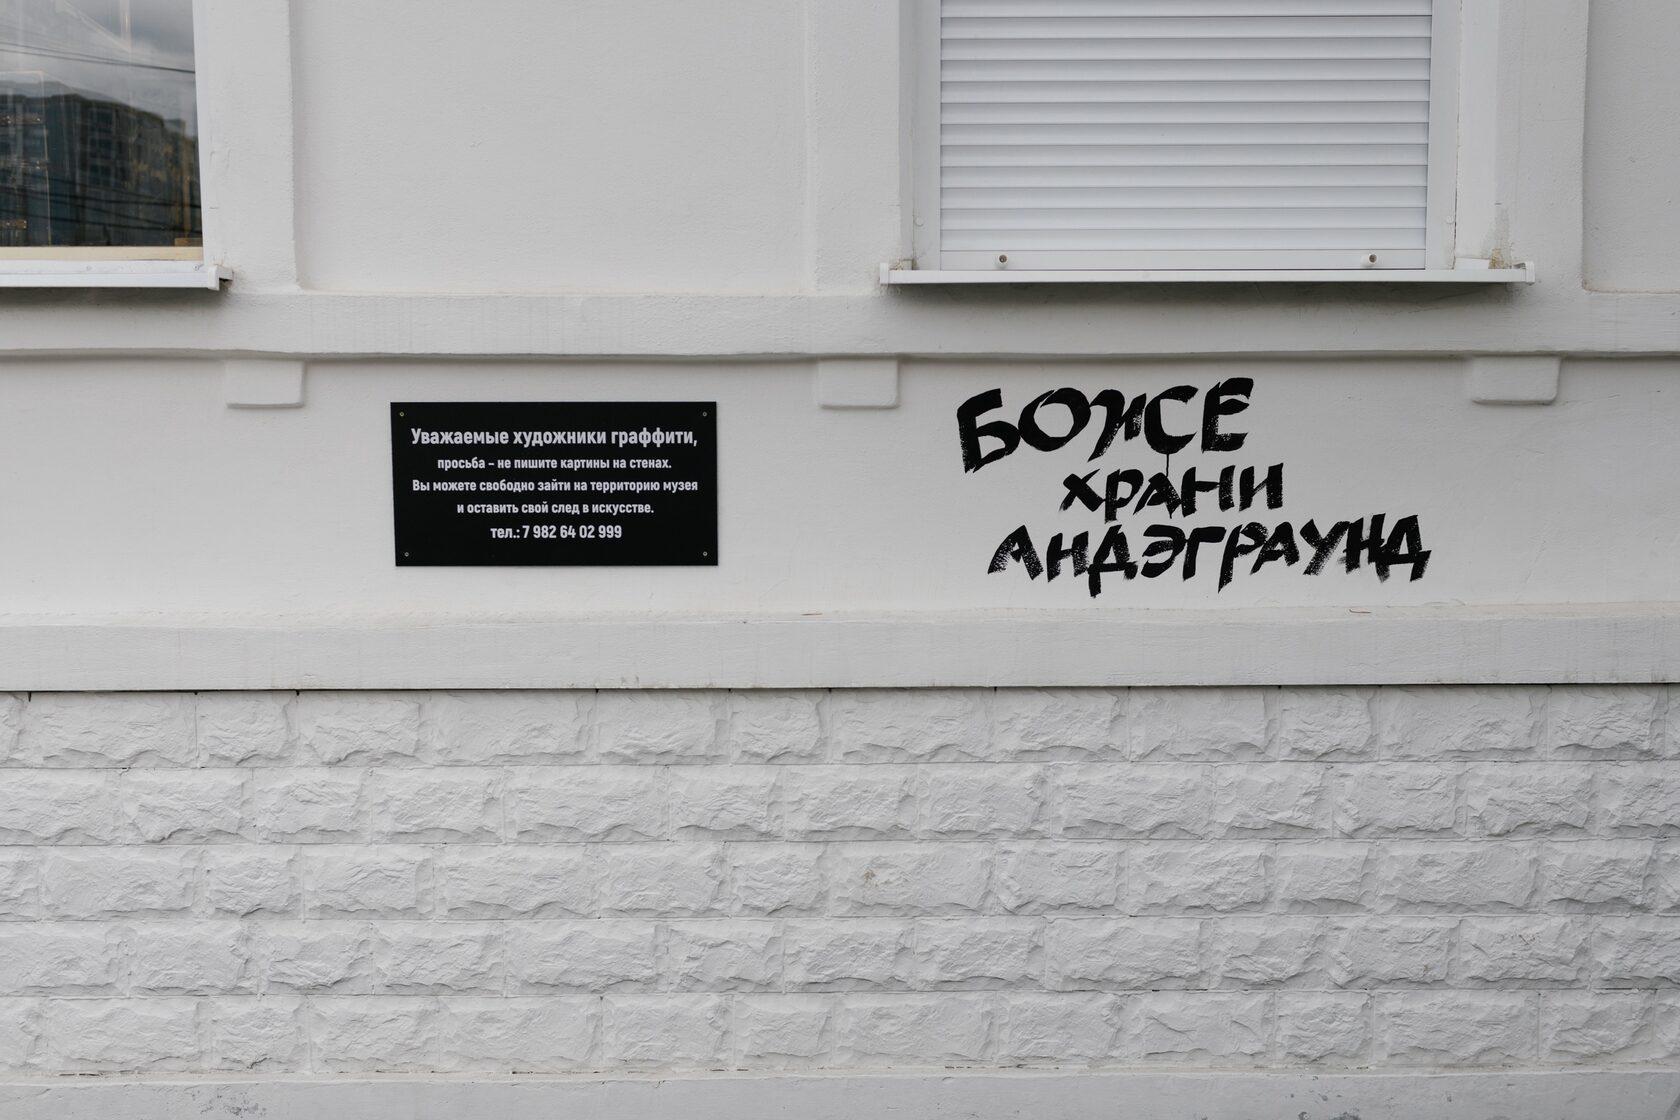 Уважаемые художники граффити,
просьба – не пишите картины на стенах.
Вы можете свободно зайти на территорию музея
и оставить свой след в искусстве.
тел.: 7 982 64 02 999
БОЖЕ
ХРАНИ
АНДЭГРАУНД